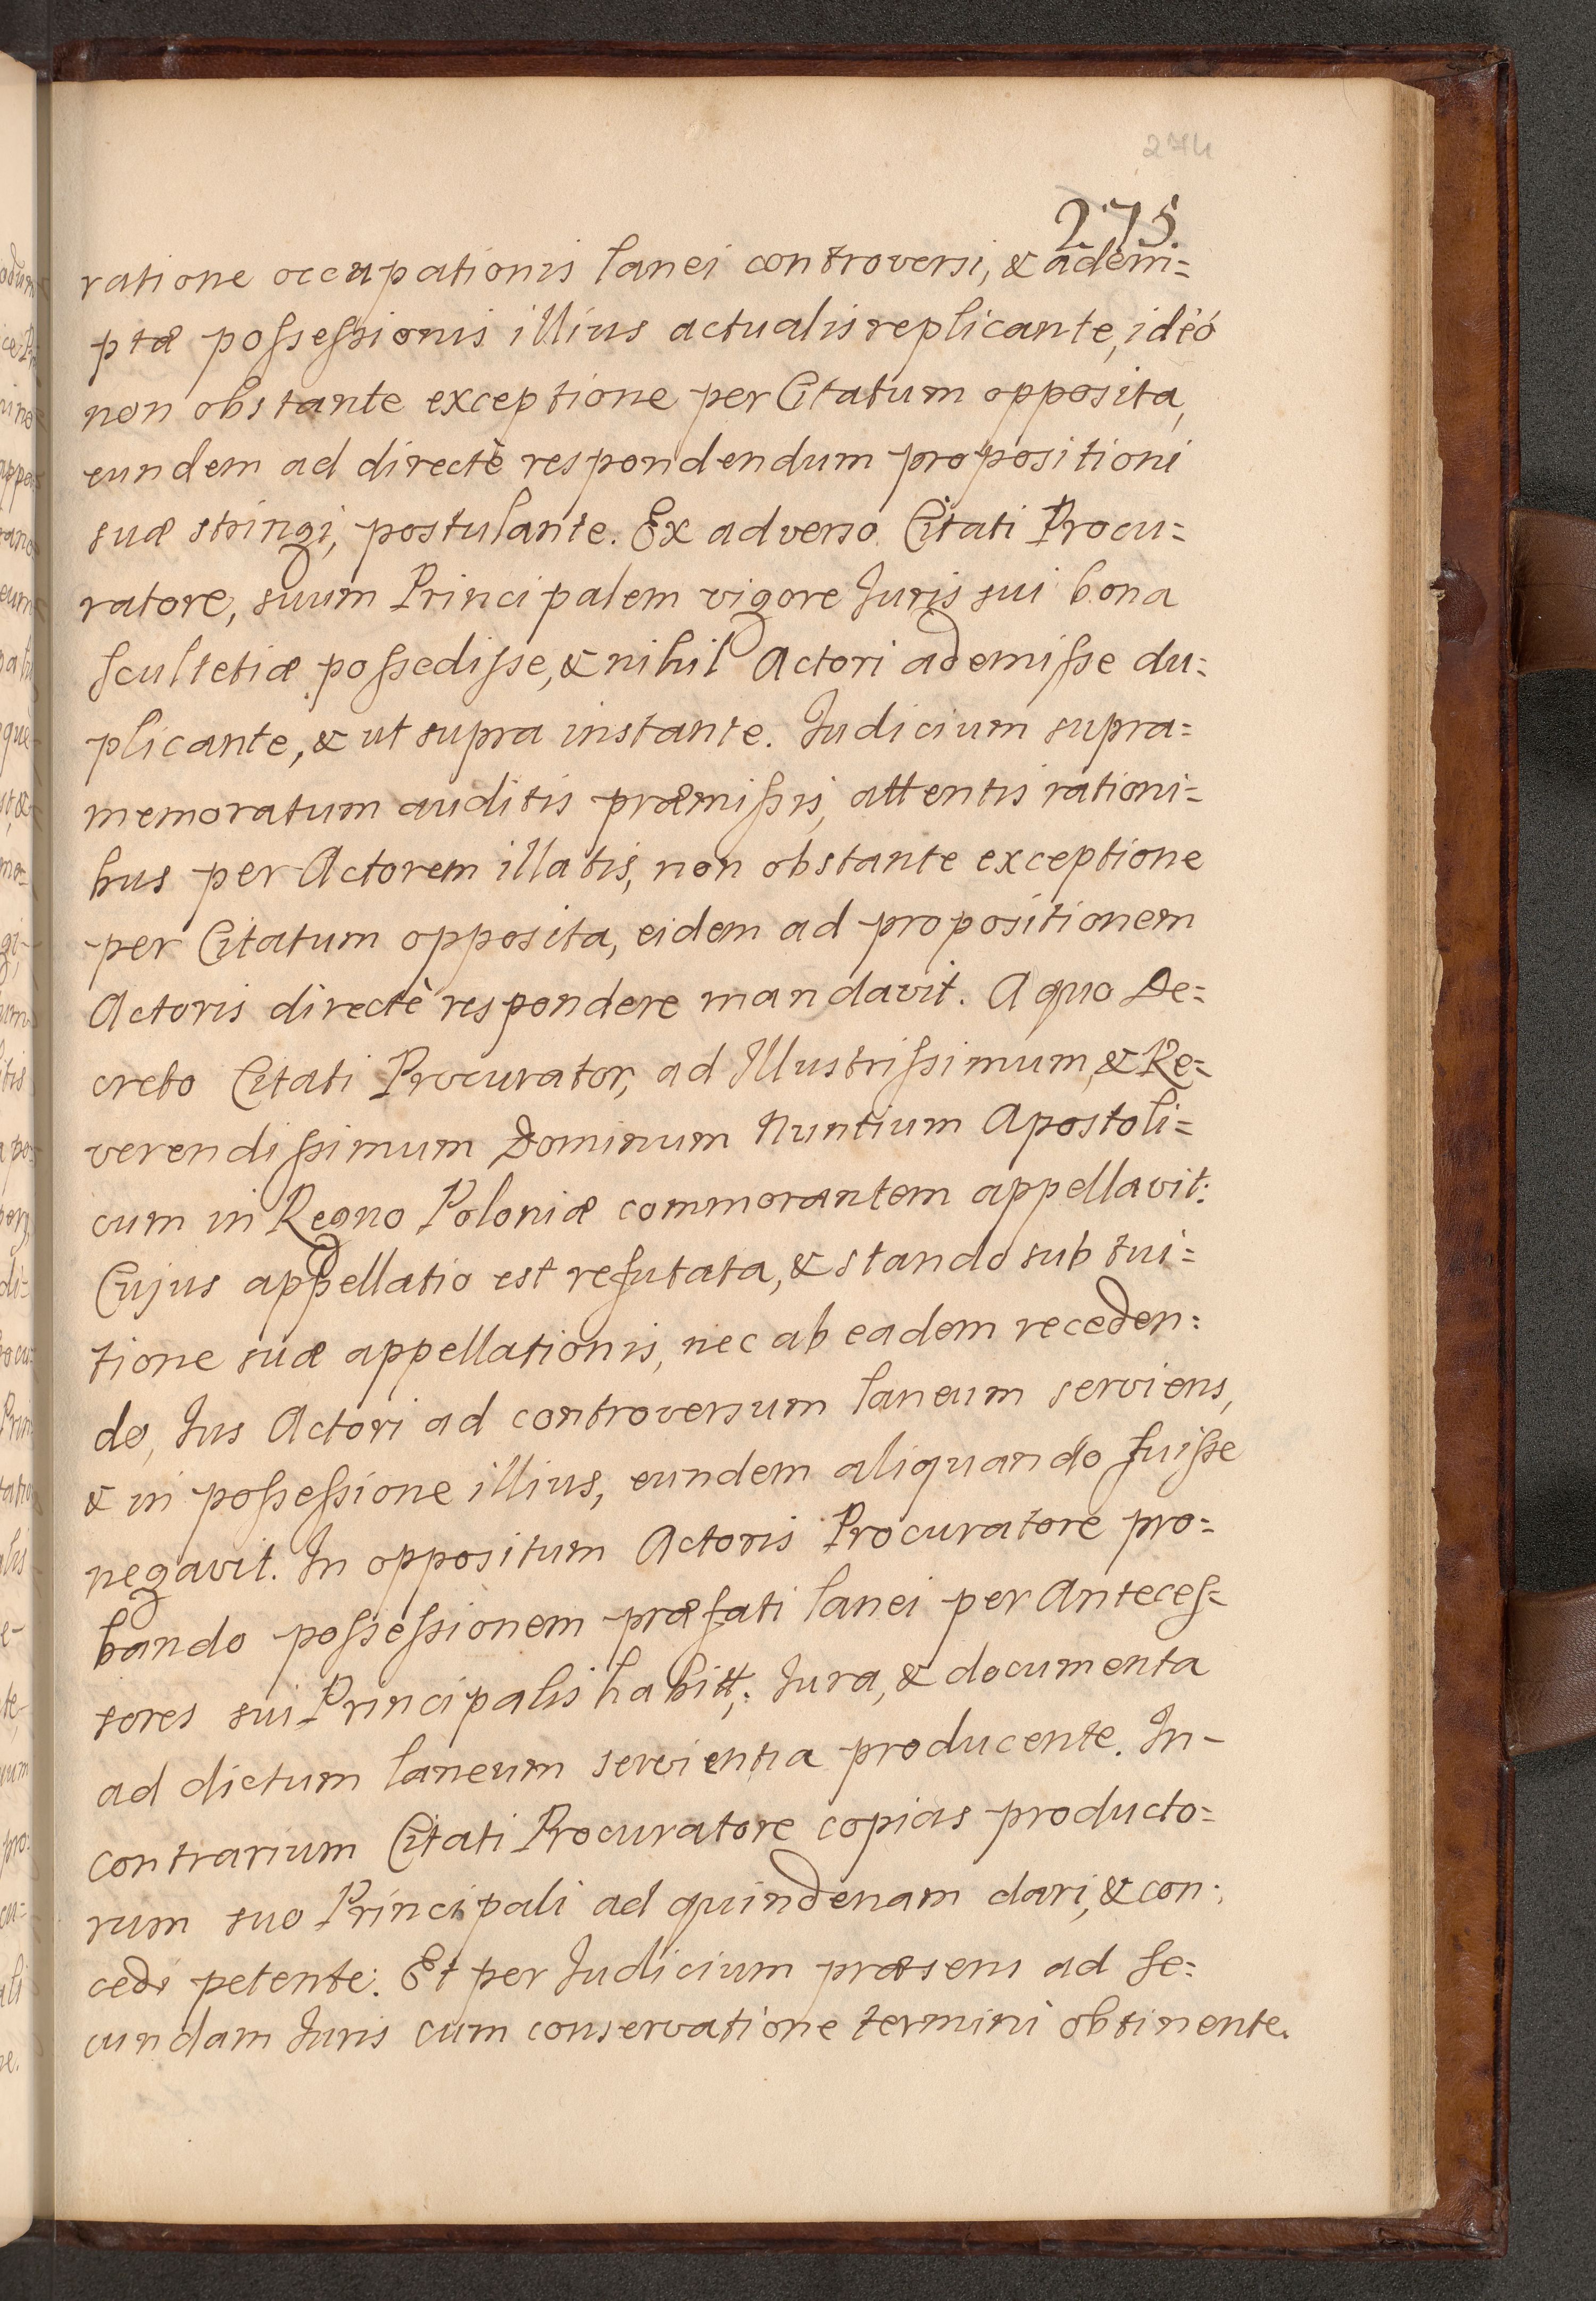 274
275.
ratione occupationis lanei controversi, & adem=
ptæ possessionis illius actualis replicante, ideó
non obstante exceptione per Citatum opposita,
eundem ad directè respondendum propositioni
suæ stringi, postulante. Ex adverso Citati Procu=
ratore, suum Principalem vigore Juris sui bona
scultetiæ possedisse, & nihil Actori ademisse du=
plicante, & ut supra instante. Judicium supra=
memoratum auditis præmissis, attentis rationi=
bus per Actorem illatis, non obstante exceptione
per Citatum opposita, eidem ad propositionem
Actoris directè respondere mandavit. A quo De=
creto Citati Procurator, ad Illustrissimum, & Re=
verendissimum Dominum Nuntium Apostoli=
cum in Regno Poloniæ commorantem appellavit:
Cujus appellatio est refutata, & stando sub tui=
tione suæ appellationis, nec ab eadem receden=
do, Jus Actori ad controversum laneum serviens,
& in possessione illius, eundem aliquando fuisse
negavit. In oppositum Actoris Procuratore pro=
bando possessionem præfati lanei per Anteces=
sores sui Principalis habitt,: Jura, & documenta
ad dictum laneum servientia producente. In-
contrarium Citati Procuratore copias producto=
rum suo Principali ad quindenam dari, & con=
cedi petente: Et per Judicium præsens ad se=
cundam Juris cum conservatione termini obtinente.